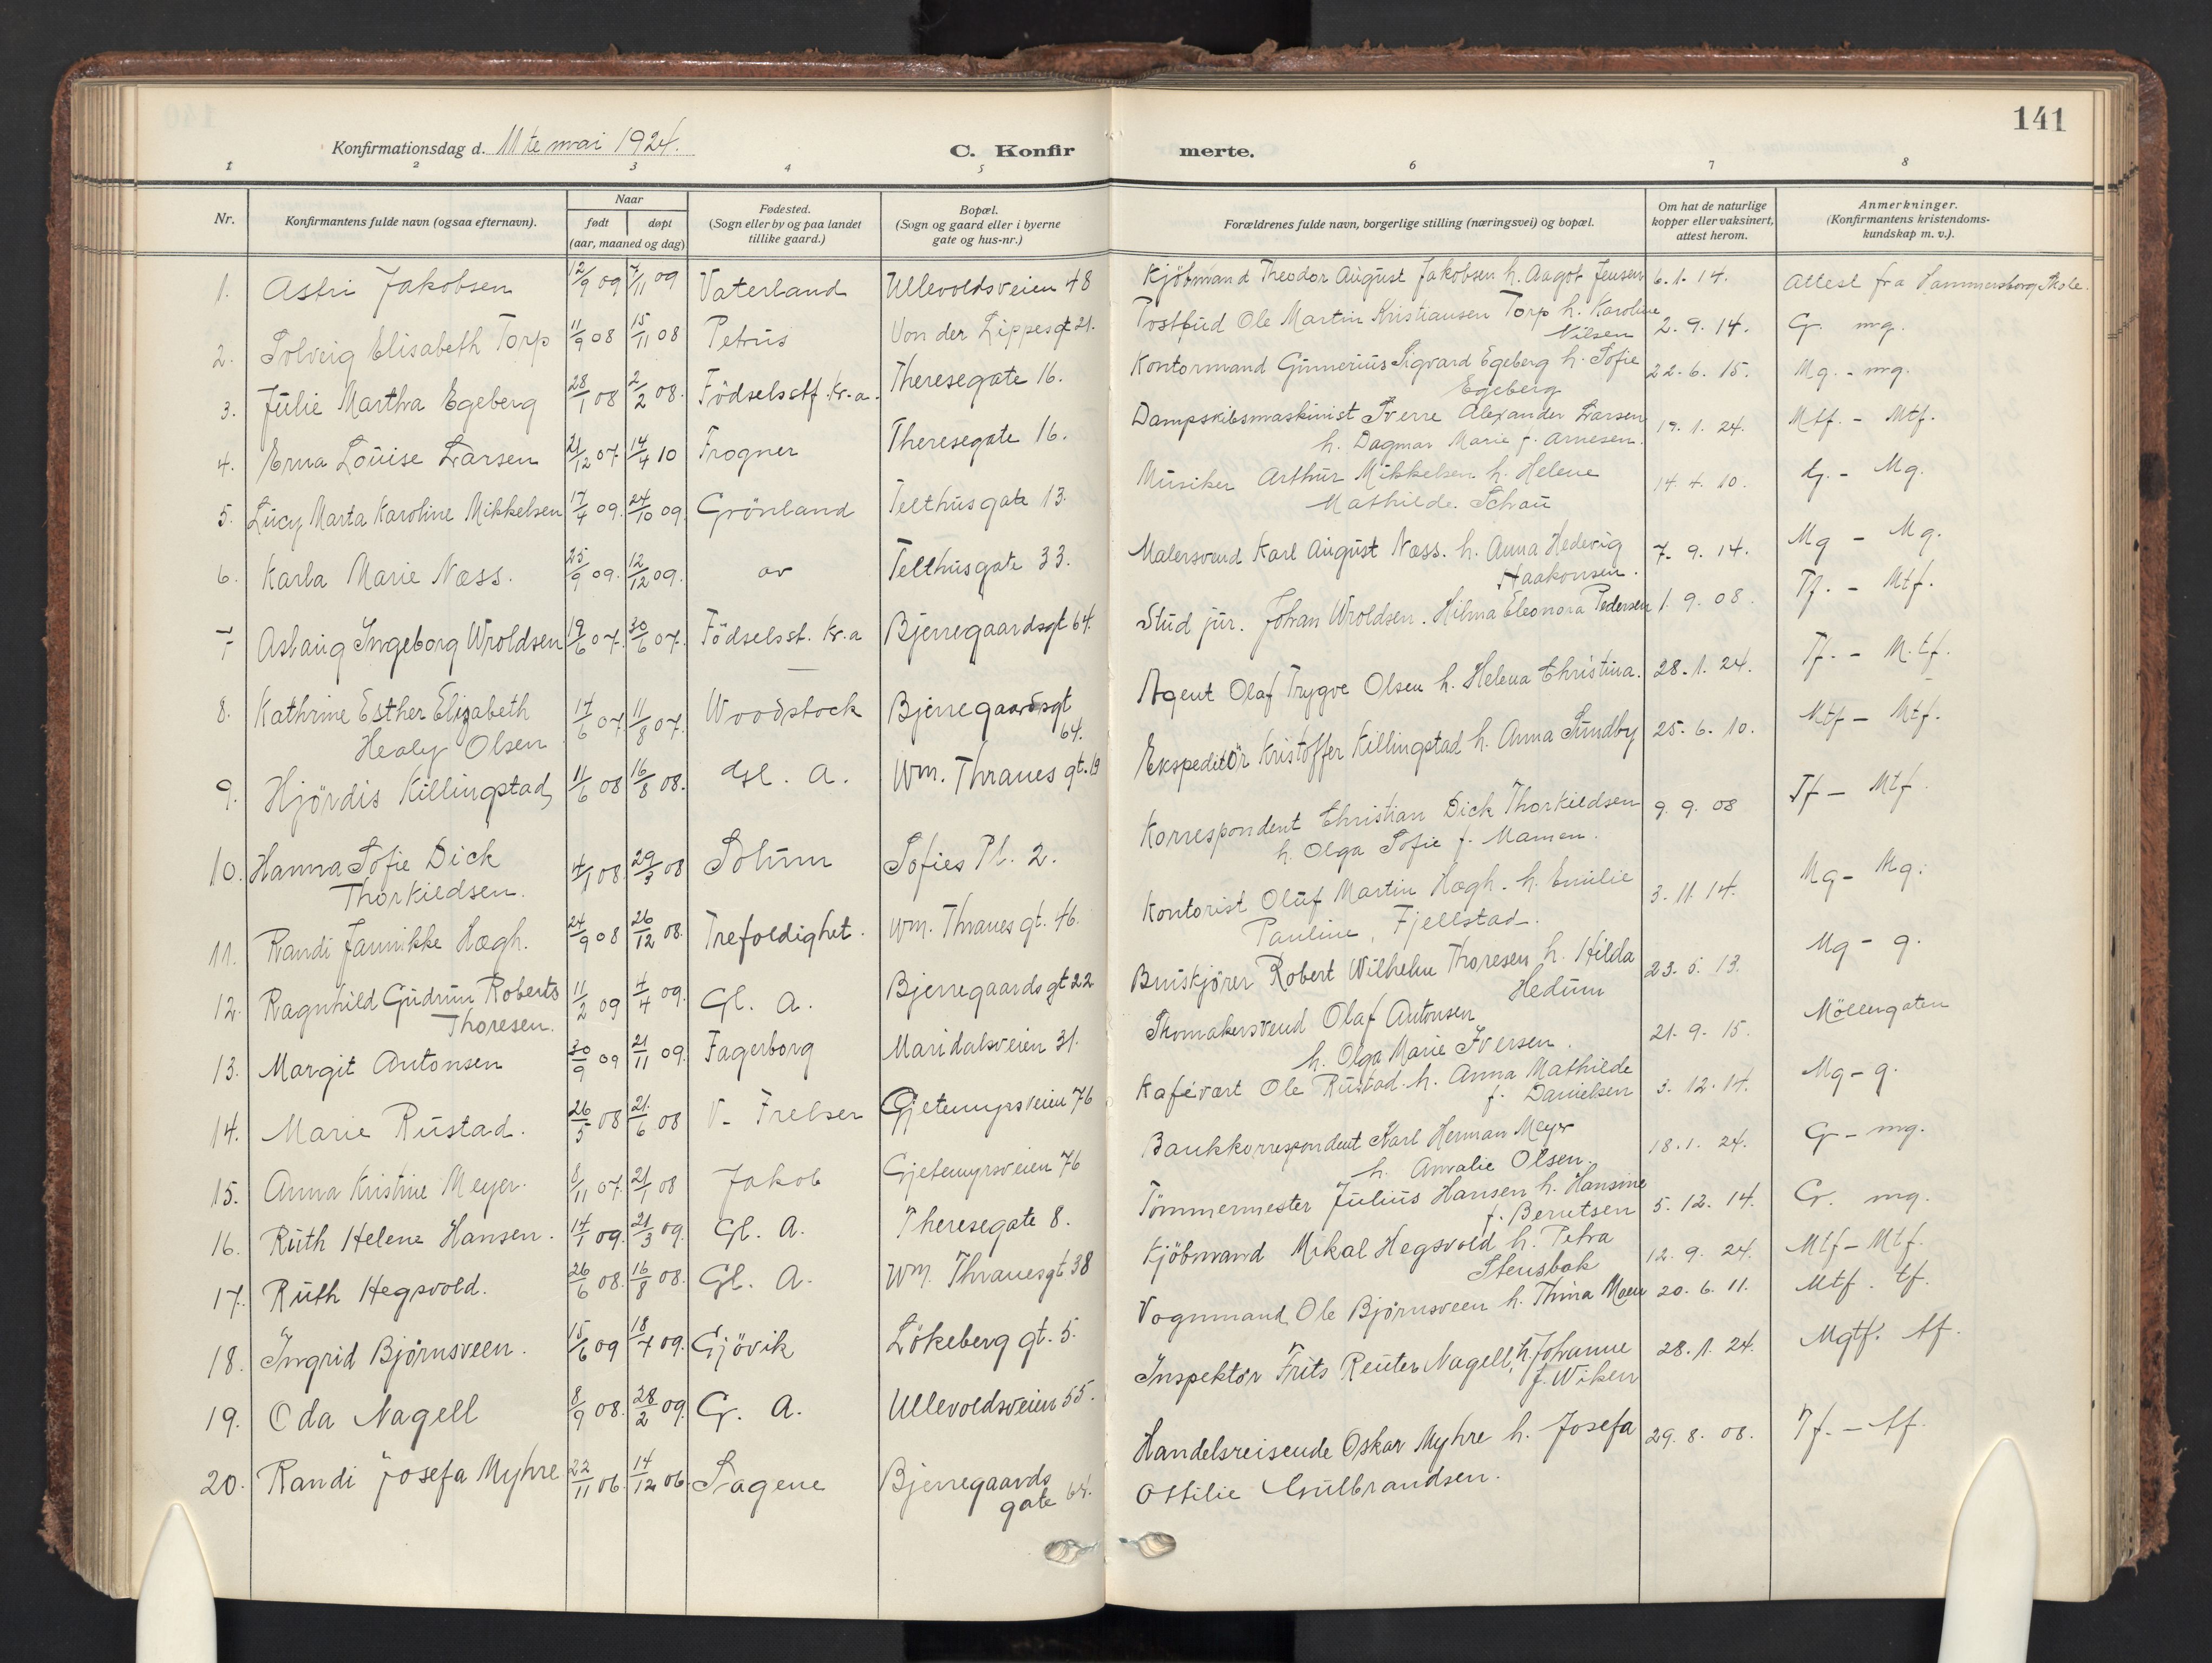 141
Konfirmationsdag d. 11te mai 1924.
C. Konfir merte.
1 2 3 4 5 6 7 8
Nr. Konfirmantens fulde navn (ogsaa efternavn). Naar født døpt (aar, maaned og dag) Fødested. (Sogn eller by og paa landet tillike gaard.) Bopæl. (Sogn og gaard eller i byerne gate og hus-nr.) Forældrenes fulde navn, borgerlige stilling (næringsvei) og bopæl. Om hat de naturlige kopper eller vaksinert, attest herom. Anmerkninger. (Konfirmantens kristendoms-kundskap m. v.).
1. Astri Jakobsen 12/9 09 7/11 09 Vaterland Ullevoldsveien 48 Kjöbmand Theodor August Jakobsen h. Aagot Jensen 6.1.14. Attest fra Hammersborg Skole.
2. Solveig Elisabeth Torp 11/9 08 15/11 08 Petrus Von der Lippesgt 21. Postbud Ole Martin Kristiansen Torp h. Karoline
Nilsen 2.9.14. G. mg.
3. Julie Martha Egeberg 28/1 08 2/2 08. Födselsst. Kr.a. Theresegate 16. Kontormand Gunnerius Sigvard Egeberg h. Sofie
Egeberg 22.6.15. Mg. - mg.
4. Erna Louise Larsen 21/12 07 14/4 10 Frogner Theresegate 16. Dampskibsmaskinist Sverre Alexander Larsen
h. Dagmar Marie f. Arnesen. 19.1.24. Mtf. - Mtf.
5. Lucy Marta Karoline Mikkelsen 17/4 09. 24/10 09. Grönland Telthusgate 13. Musiker Arthur Mikkelsen h. Helene
Mathilde Schau 14.4.10. g. - Mg.
6. Karla Marie Næss. 25/9 09. 12/12 09. Telthusgate 33. Malersvend Karl August Næss. h. Anna Hedevig
Haakonsen. 7.9.14. Mg - Mg.
7 Aslaug Ingeborg Wroldsen 19/6 07. 30/6 07. Födselsst. Kr.a Bjerregaardsgt 64. Stud jur. Johan Wroldsen. Hilma Eleonora Pedersen 1.9.08. Tf. - Mtf.
8. Kathrine Esther Elizabeth
Healy Olsen 14/6 07. 11/8 07. Woodstock Bjerregaardsgt
64. Agent Olaf Trygve Olsen h. Helena Christina. 28.1.24. Tf. - M.tf.
9. Hjördis Killingstad 11/6 08 16/8 08. Gl. A. Wm. Thranes gt. 13 Ekspeditör Kristoffer Killingstad h. Anna Sundby 25.6.10. Mtf - Mtf.
10. Hanna Sofie Dick
Thorkildsen. 4/1 08 29/3 08 Solum Sofies Pl. 2. Korrespondent Christian Dick Thorkildsen
h. Olga Sofie f. Mamen. 9.9.08 Tf - Mtf.
11. Randi Jannikke Hægh. 24/9 08 26/12 08. Trefoldighet. Wm. Thranes gt. 46. Kontorist Oluf Martin Hægh. h. Emilie
Pauline, Fjellstad. 3.11.14. Mg - Mg.
12. Ragnhild Gudrun Roberts
Thoresen. 11/2 09 4/4 09. Gl. A. Bjerregaardsgt 22 Buiskjörer Robert Wilhelm Thoresen h. Hilda
Hedum 23.5.13. Mg - g.
13. Margit Antonsen 30/9 09 21/11 09. Fagerborg Maridalsveien 31. Skomakersvend Olaf Antonsen
h. Olga Marie Iversen. 21.9.15. Möllergaten
14. Marie Rustad. 26/5 08 21/6 08 V. Frelser Gjetemyrsveien 76 Kafévært Ole Rustad. h. Anna Mathilde
f. Danielsen 3.12.14. Mg - g.
15. Anna Kristine Meyer. 8/11 07. 21/1 08 Jakob Gjetemyrsveien 76 Bankkorrespondent Karl Herman Meyer
h. Amalie Olsen. 18.1.24. G - mg.
16. Ruth Helene Hansen. 14/1 09. 21/3 09. Gl. A. Theresegate 8. Tömmermester Julius Hansen h. Hansine
f. Berntsen 5.12.14. G. mg.
17. Ruth Hegsvold. 26/6 08. 16/8 08. Gl. A. Wm. Thranesgt 38 Kjöbmand Mikal Hegsvold h. Petra
Stensbak 12.9.24. Mtf - Mtf.
18. Ingrid Björnsveen. 15/6 09 18/7 09. Gjövik Lökeberg gt. 5. Vognmand Ole Björnsveen h. Thina Moen 20.6.11. Mtf. tf.
19. Oda Nagell 8/9 08. 28/2 09. G. A. Ullevoldsveien 55. Inspektör Frits Reuter Nagell, h. Johanne
f. Wiken 28.1.24. Mgtf. tf.
20. Randi Josefa Myhre 22/11 06. 14/12 06. Sagene Bjerregaards
gate 64. Handelsreisende Oskar Myhre h. Josefa
Ottilie Gulbrandsen. 29.8.08. Tf. - tf.